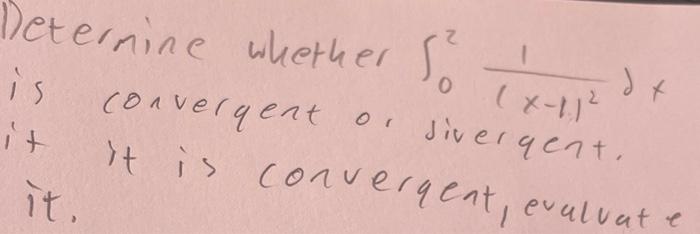 Determine whether ∫₀² 1/(x-1)² dx
is convergent or divergent.
it it is convergent, evaluate
it.